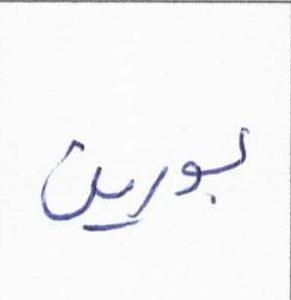 بورين